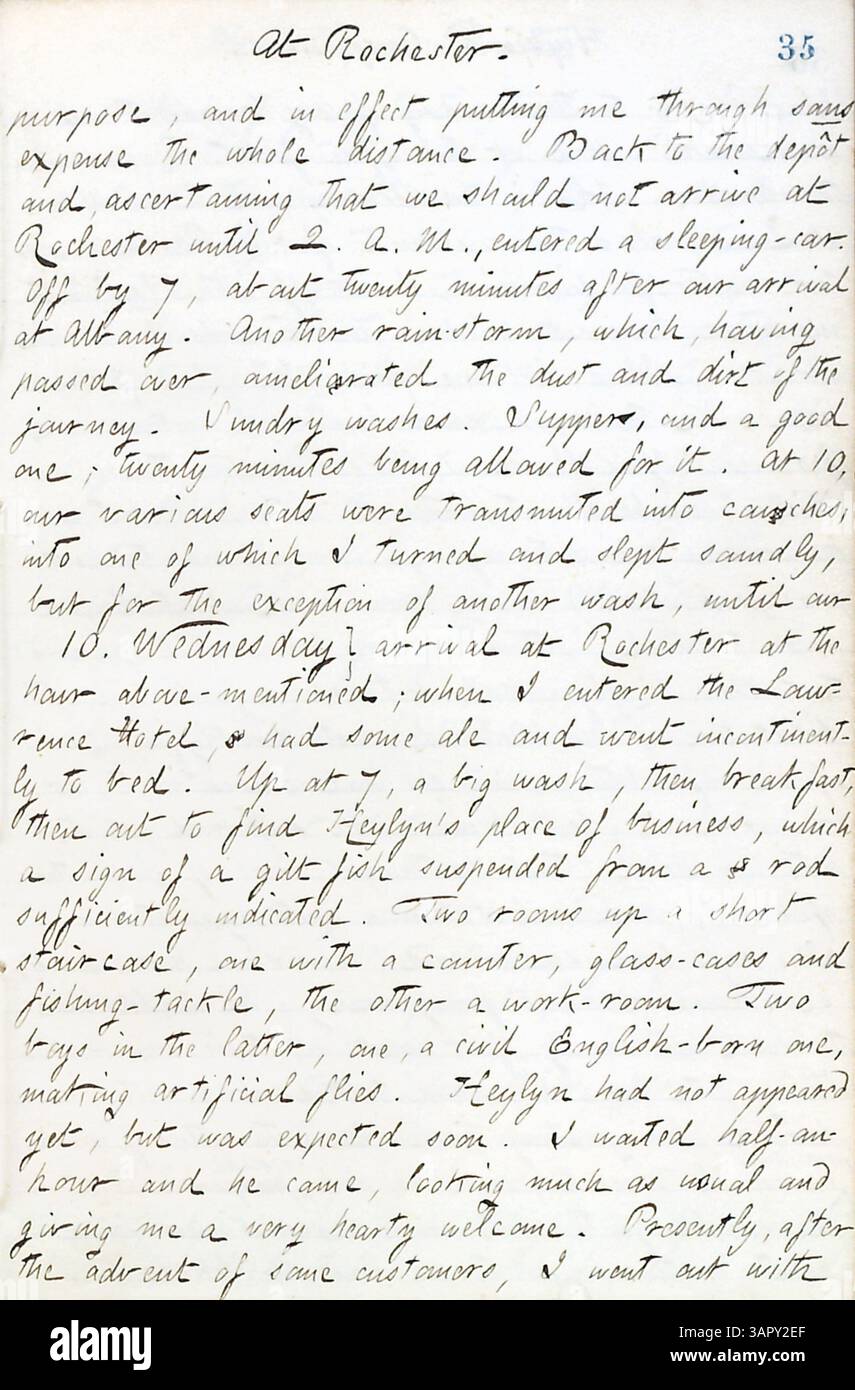 At Rochester.
35
purpose, and in effect putting me through sans
expense the whole distance. Back to the depôt
and, ascertaining that we should not arrive at
Rochester until 2. A. M., entered a sleeping-car.
Off by 7, about twenty minutes after our arrival
at Albany. Another rain-storm, which, having
passed over, ameliorated the dust and dirt of the
journey. Sundry washes. Supper, and a good
one; twenty minutes being allowed for it. At 10,
our various seats were transmuted into couches,
into one of which I turned and slept soundly,
but for the exception of another wash, until our
10. Wednesday} arrival at Rochester at the
hour above-mentioned; when I entered the Law-
rence Hotel, had some ale and went incontinent-
ly to bed. Up at 7, a big wash, then breakfast,
then out to find Heylyn's place of business, which
a sign of a gilt fish suspended from a rod
sufficiently indicated. Two rooms up a short
staircase, one with a counter, glass-cases and
fishing-tackle, the other a work-room. Two
boys in the latter, one, a civil English-born one,
making artificial flies. Heylyn had not appeared
yet, but was expected soon. I waited half-an-
hour and he came, looking much as usual and
giving me a very hearty welcome. Presently, after
the advent of some customers, I went out with
alamy
Image ID: 3APY2EF
www.alamy.com